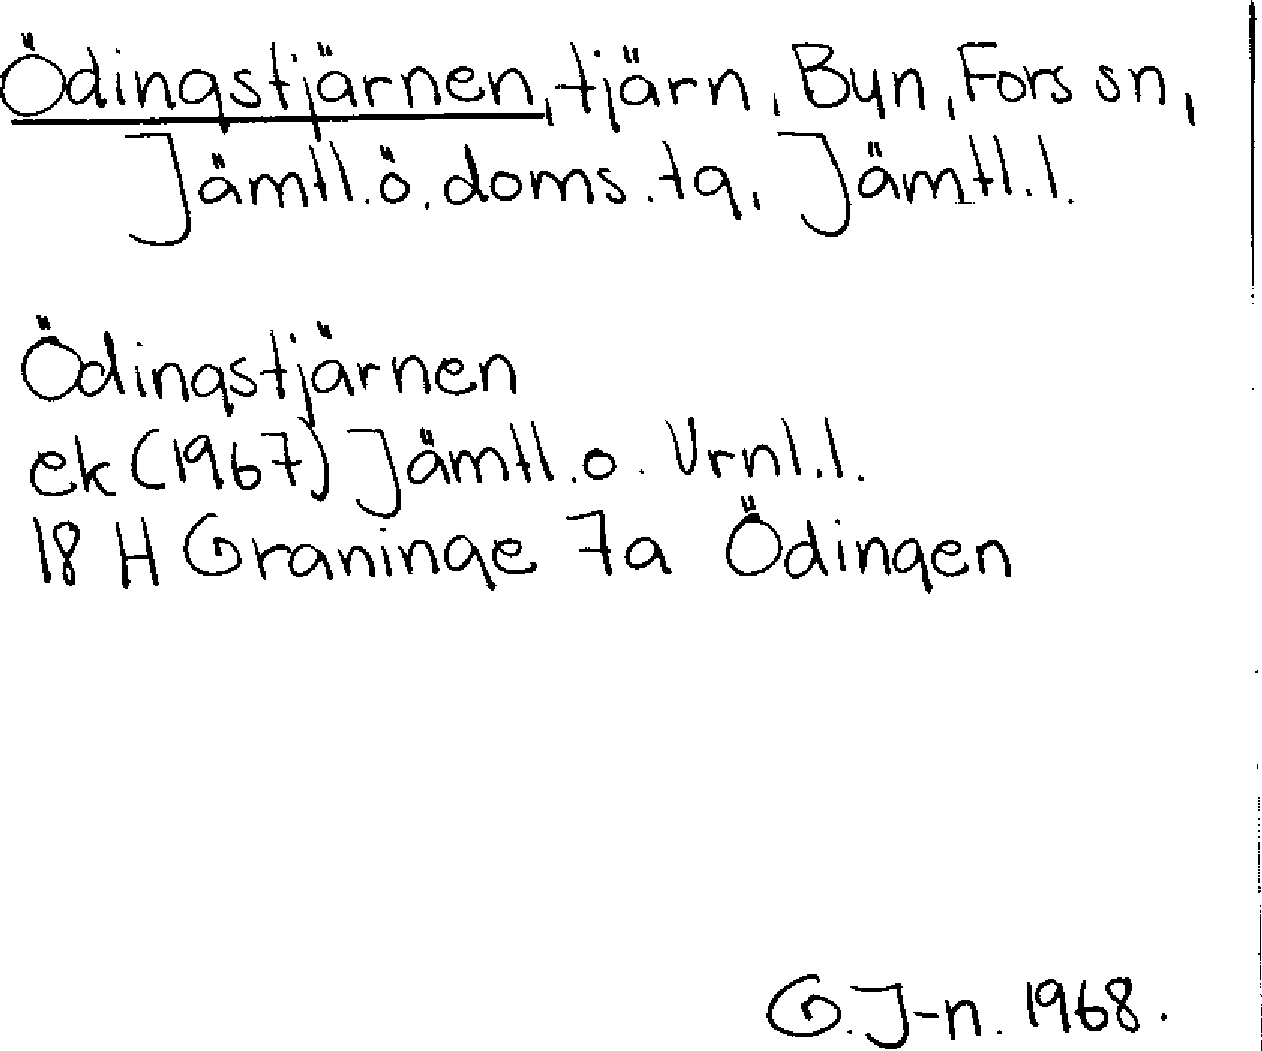 Ödingstjärnen, tjärn, Byn, Fors sn,
Jämtl.ö. doms.tg, Jämtl.l.
Ödingstjärnen
ek (1967) Jämtl.o. Vrnl.l.
18 H Graninge 7a Ödingen
G.J-n. 1968.